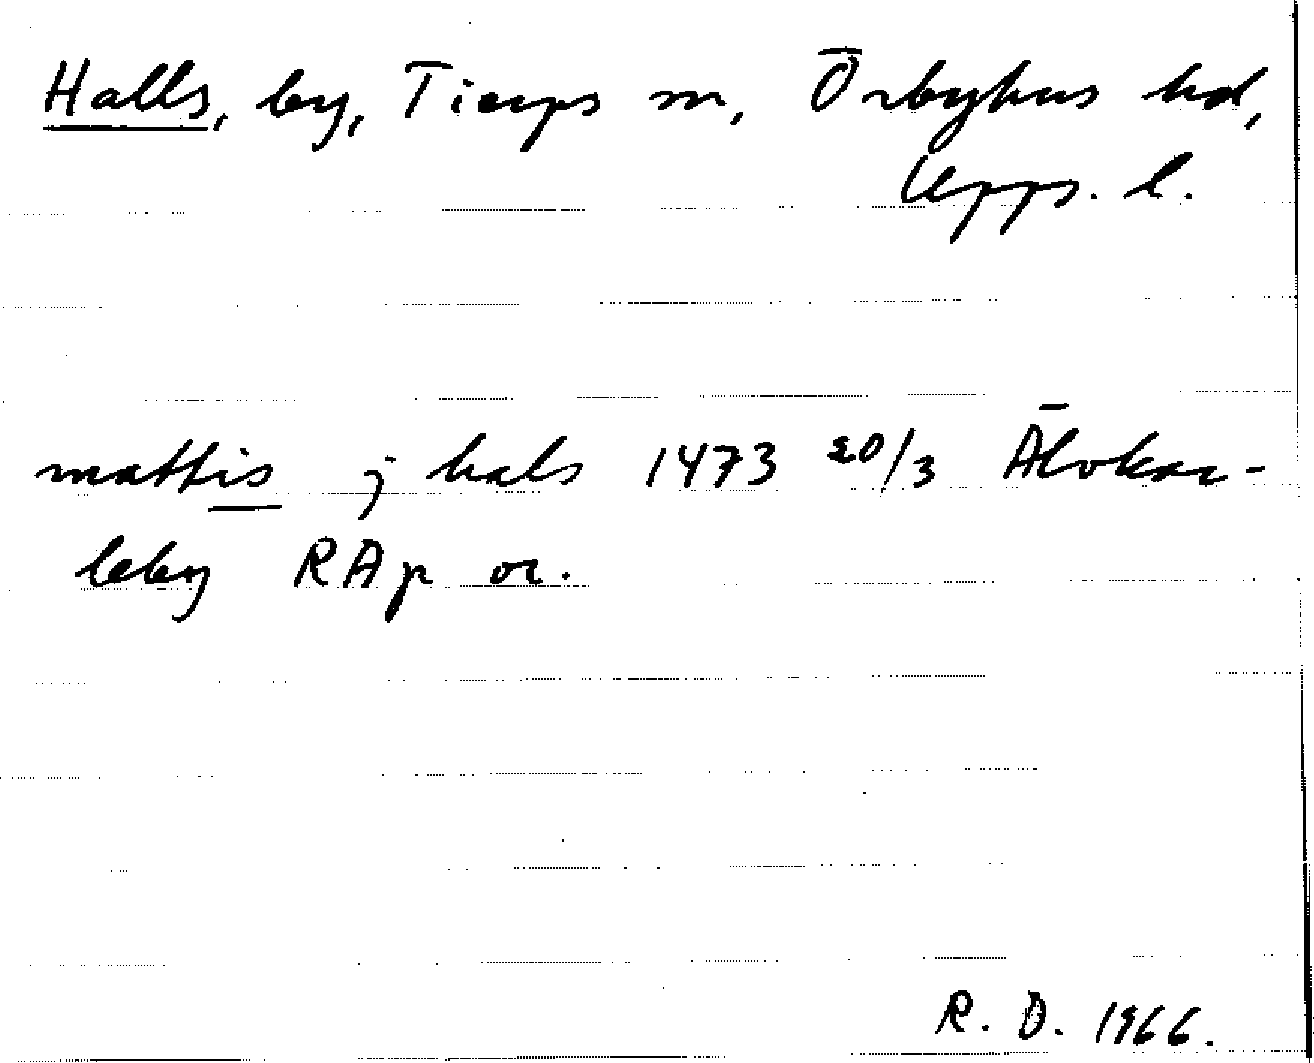 Halls, by, Tierps sn, Örbyhus hd,
Upps. l.
mattis j hals 1473 20/3 Älvkar-
leby RAp or.
R. D. 1966.